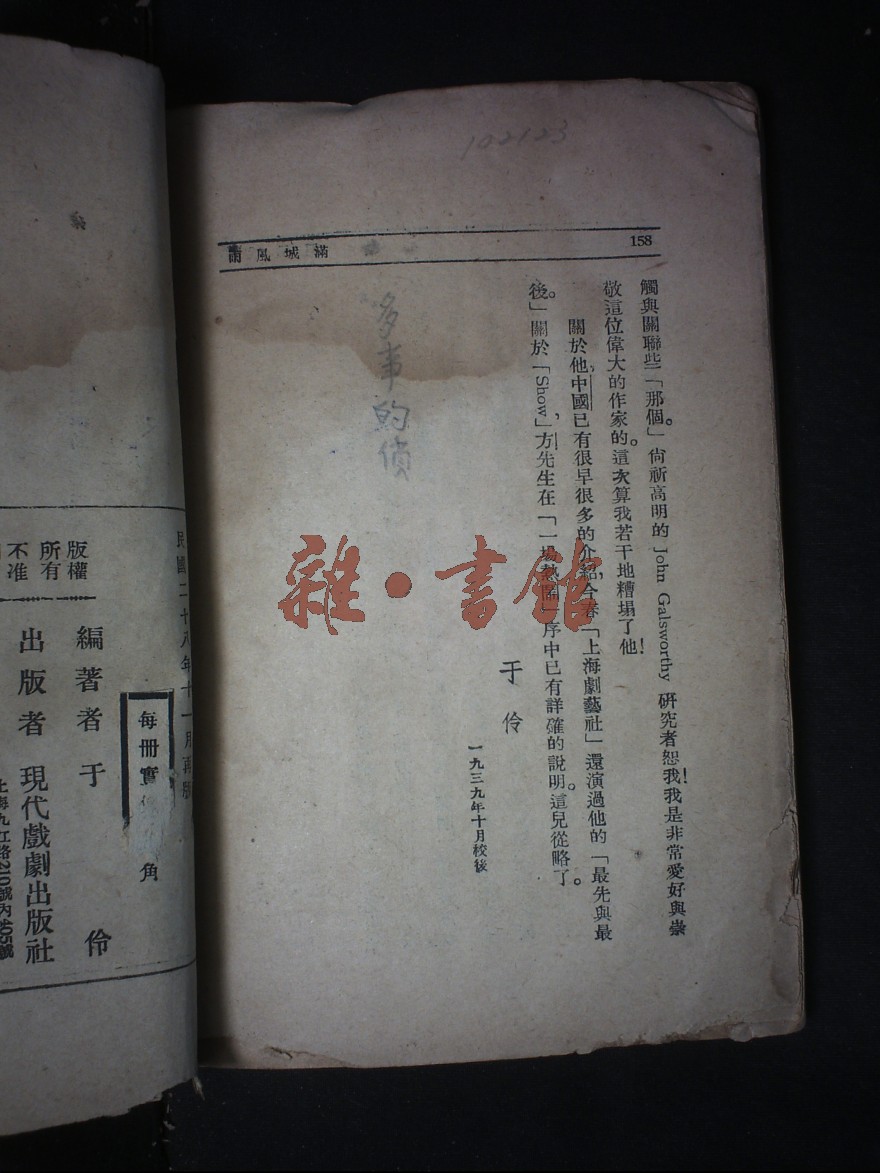 102123
158
滿城風雨
觸與關聯些「那個。」尙祈高明的 John Galsworthy 研究者恕我!我是非常愛好與崇
敬這位偉大的作家的。這次算我若干地糟塌了他!
關於他,中國已有很早很多的介紹,今春「上海劇藝社」還演過他的「最先與最
後。」關於「Show」,方先生在「一場熱鬧」序中已有詳確的說明。這兒從略了。
于伶
一九三九年十月校後
多事的偵
雜·書館
民國二十八年十一月再版
每冊實 角
版權
所有
不准
編著者 于伶
出版者 現代戲劇出版社
上海九江路210號內405號